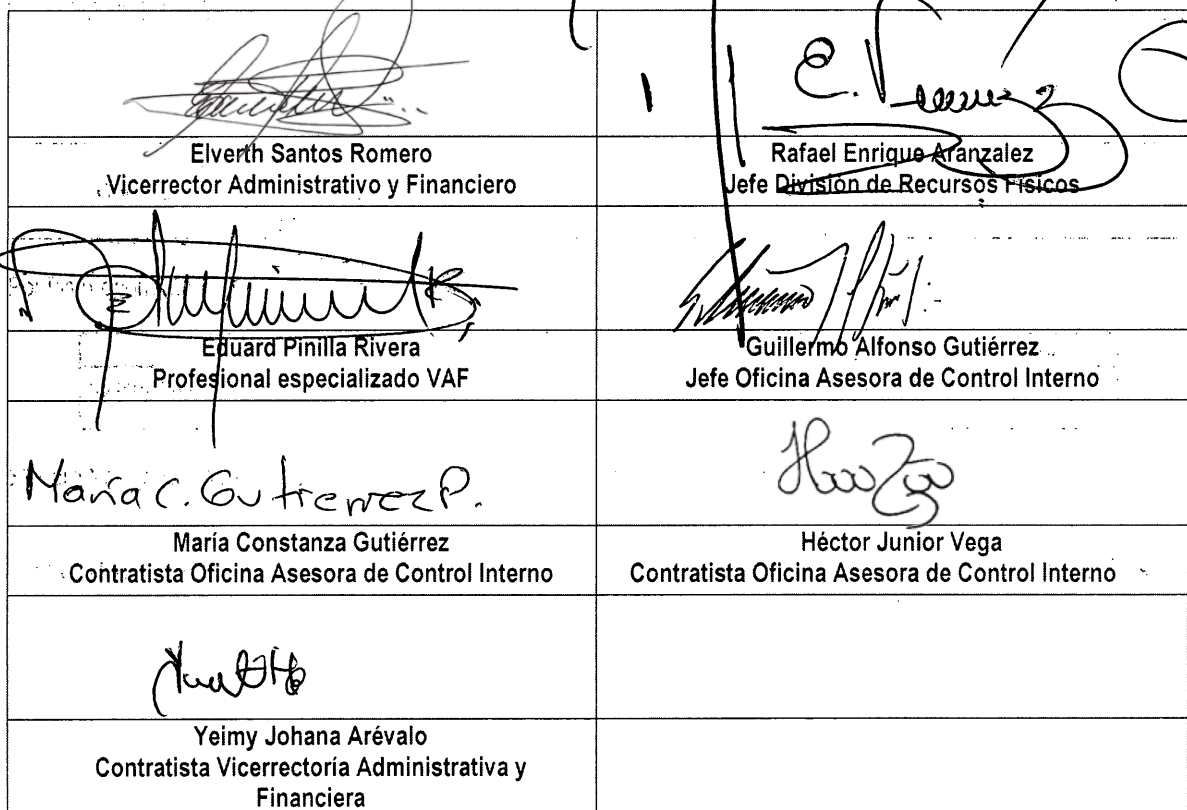 Elverth Santos Romero
Vicerrector Administrativo y Financiero
Rafael Enrique Aranzalez
Jefe División de Recursos Físicos
Eduard Pinilla Rivera
Profesional especializado VAF
Guillermo Alfonso Gutiérrez
Jefe Oficina Asesora de Control Interno
María C. Gutierrez P.
María Constanza Gutiérrez
Contratista Oficina Asesora de Control Interno
Héctor Junior Vega
Contratista Oficina Asesora de Control Interno
Yeimy Johana Arévalo
Contratista Vicerrectoría Administrativa y
Financiera